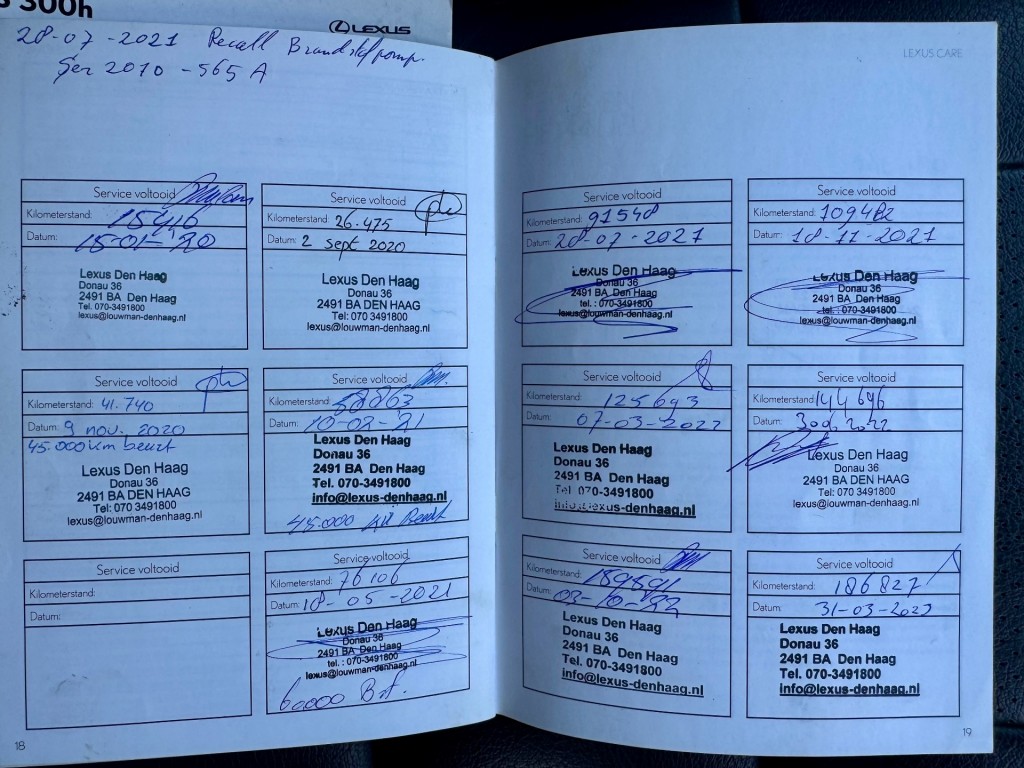 s 300h
LEXUS
28-07-2021 Recall Brandstofpomp.
Ser 2010 - 565 A
Service voltooid
Kilometerstand: 15416
Datum: 15-01-20
Lexus Den Haag
Donau 36
2491 BA Den Haag
Tel. 070-3491800
lexus@louwman-denhaag.nl
Service voltooid
Kilometerstand: 26.475
Datum: 2 sept 2020
Lexus Den Haag
Donau 36
2491 BA DEN HAAG
Tel: 070 3491800
lexus@louwman-denhaag.nl
Service voltooid
Kilometerstand: 41.740
Datum: 9 nov. 2020
45.000km beurt
Lexus Den Haag
Donau 36
2491 BA DEN HAAG
Tel: 070 3491800
lexus@louwman-denhaag.nl
Service voltooid
Kilometerstand: 58863
Datum: 10-02-21
Lexus Den Haag
Donau 36
2491 BA Den Haag
Tel. 070-3491800
info@lexus-denhaag.nl
45.000 Beurt
Service voltooid
Kilometerstand:
Datum:
Service voltooid
Kilometerstand: 76106
Datum: 18-05-2021
Lexus Den Haag
Donau 36
2491 BA Den Haag
tel. : 070-3491800
lexus@louwman-denhaag.nl
60000
18
LEXUS CARE
Service voltooid
Kilometerstand: 91548
Datum: 28-07-2021
Lexus Den Haag
Donau 36
2491 BA Den Haag
tel. : 070-3491800
lexus@louwman-denhaag.nl
Service voltooid
Kilometerstand: 109482
Datum: 18-11-2021
Lexus Den Haag
Donau 36
2491 BA Den Haag
tel. : 070-3491800
lexus@louwman-denhaag.nl
Service voltooid
Kilometerstand: 125693
Datum: 07-03-2022
Lexus Den Haag
Donau 36
2491 BA Den Haag
Tel. 070-3491800
info@lexus-denhaag.nl
Service voltooid
Kilometerstand: 144696
Datum: 30 06 2022
Lexus Den Haag
Donau 36
2491 BA DEN HAAG
Tel: 070 3491800
lexus@louwman-denhaag.nl
Service voltooid
Kilometerstand:
Datum: 03-10-22
Lexus Den Haag
Donau 36
2491 BA Den Haag
Tel. 070-3491800
info@lexus-denhaag.nl
Service voltooid
Kilometerstand: 186827
Datum: 31-03-2023
Lexus Den Haag
Donau 36
2491 BA Den Haag
Tel. 070-3491800
info@lexus-denhaag.nl
19